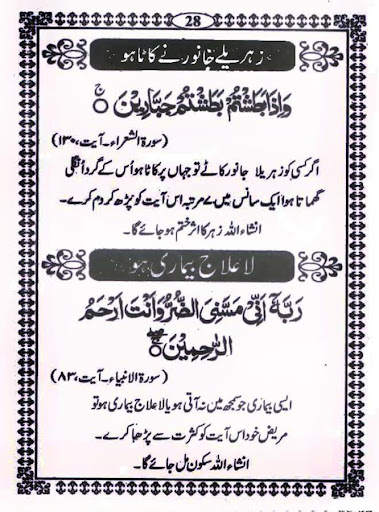 28
زہریلے جانور نے کاٹا ہو
وَاِذَا بَطَشْتُمْ بَطَشْتُمْ جَبَّارِيْنَ ۝ ج
(سورۃ الشعراء۔ آیت، ۱۳۰)
اگر کسی کو زہریلا جانور کاٹے تو جہاں پر کاٹا ہو اُس کے گرد اُنگلی
گھماتا ہوا ایک سانس میں ۷ مرتبہ اس آیت کو پڑھ کر دم کرے۔
انشاء اللہ زہر کا اثر ختم ہو جائے گا۔
لا علاج بیماری ہو
رَبَّهٗٓ اَنِّيْ مَسَّنِيَ الضُّرُّ وَاَنْتَ اَرْحَمُ
الرّٰحِمِيْنَ ۝
(سورۃ الانبیاء۔ آیت، ۸۳)
ایسی بیماری جو سمجھ میں نہ آتی ہو یا لا علاج بیماری ہو تو
مریض خود اس آیت کو کثرت سے پڑھا کرے۔
انشاء اللہ سکون مل جائے گا۔